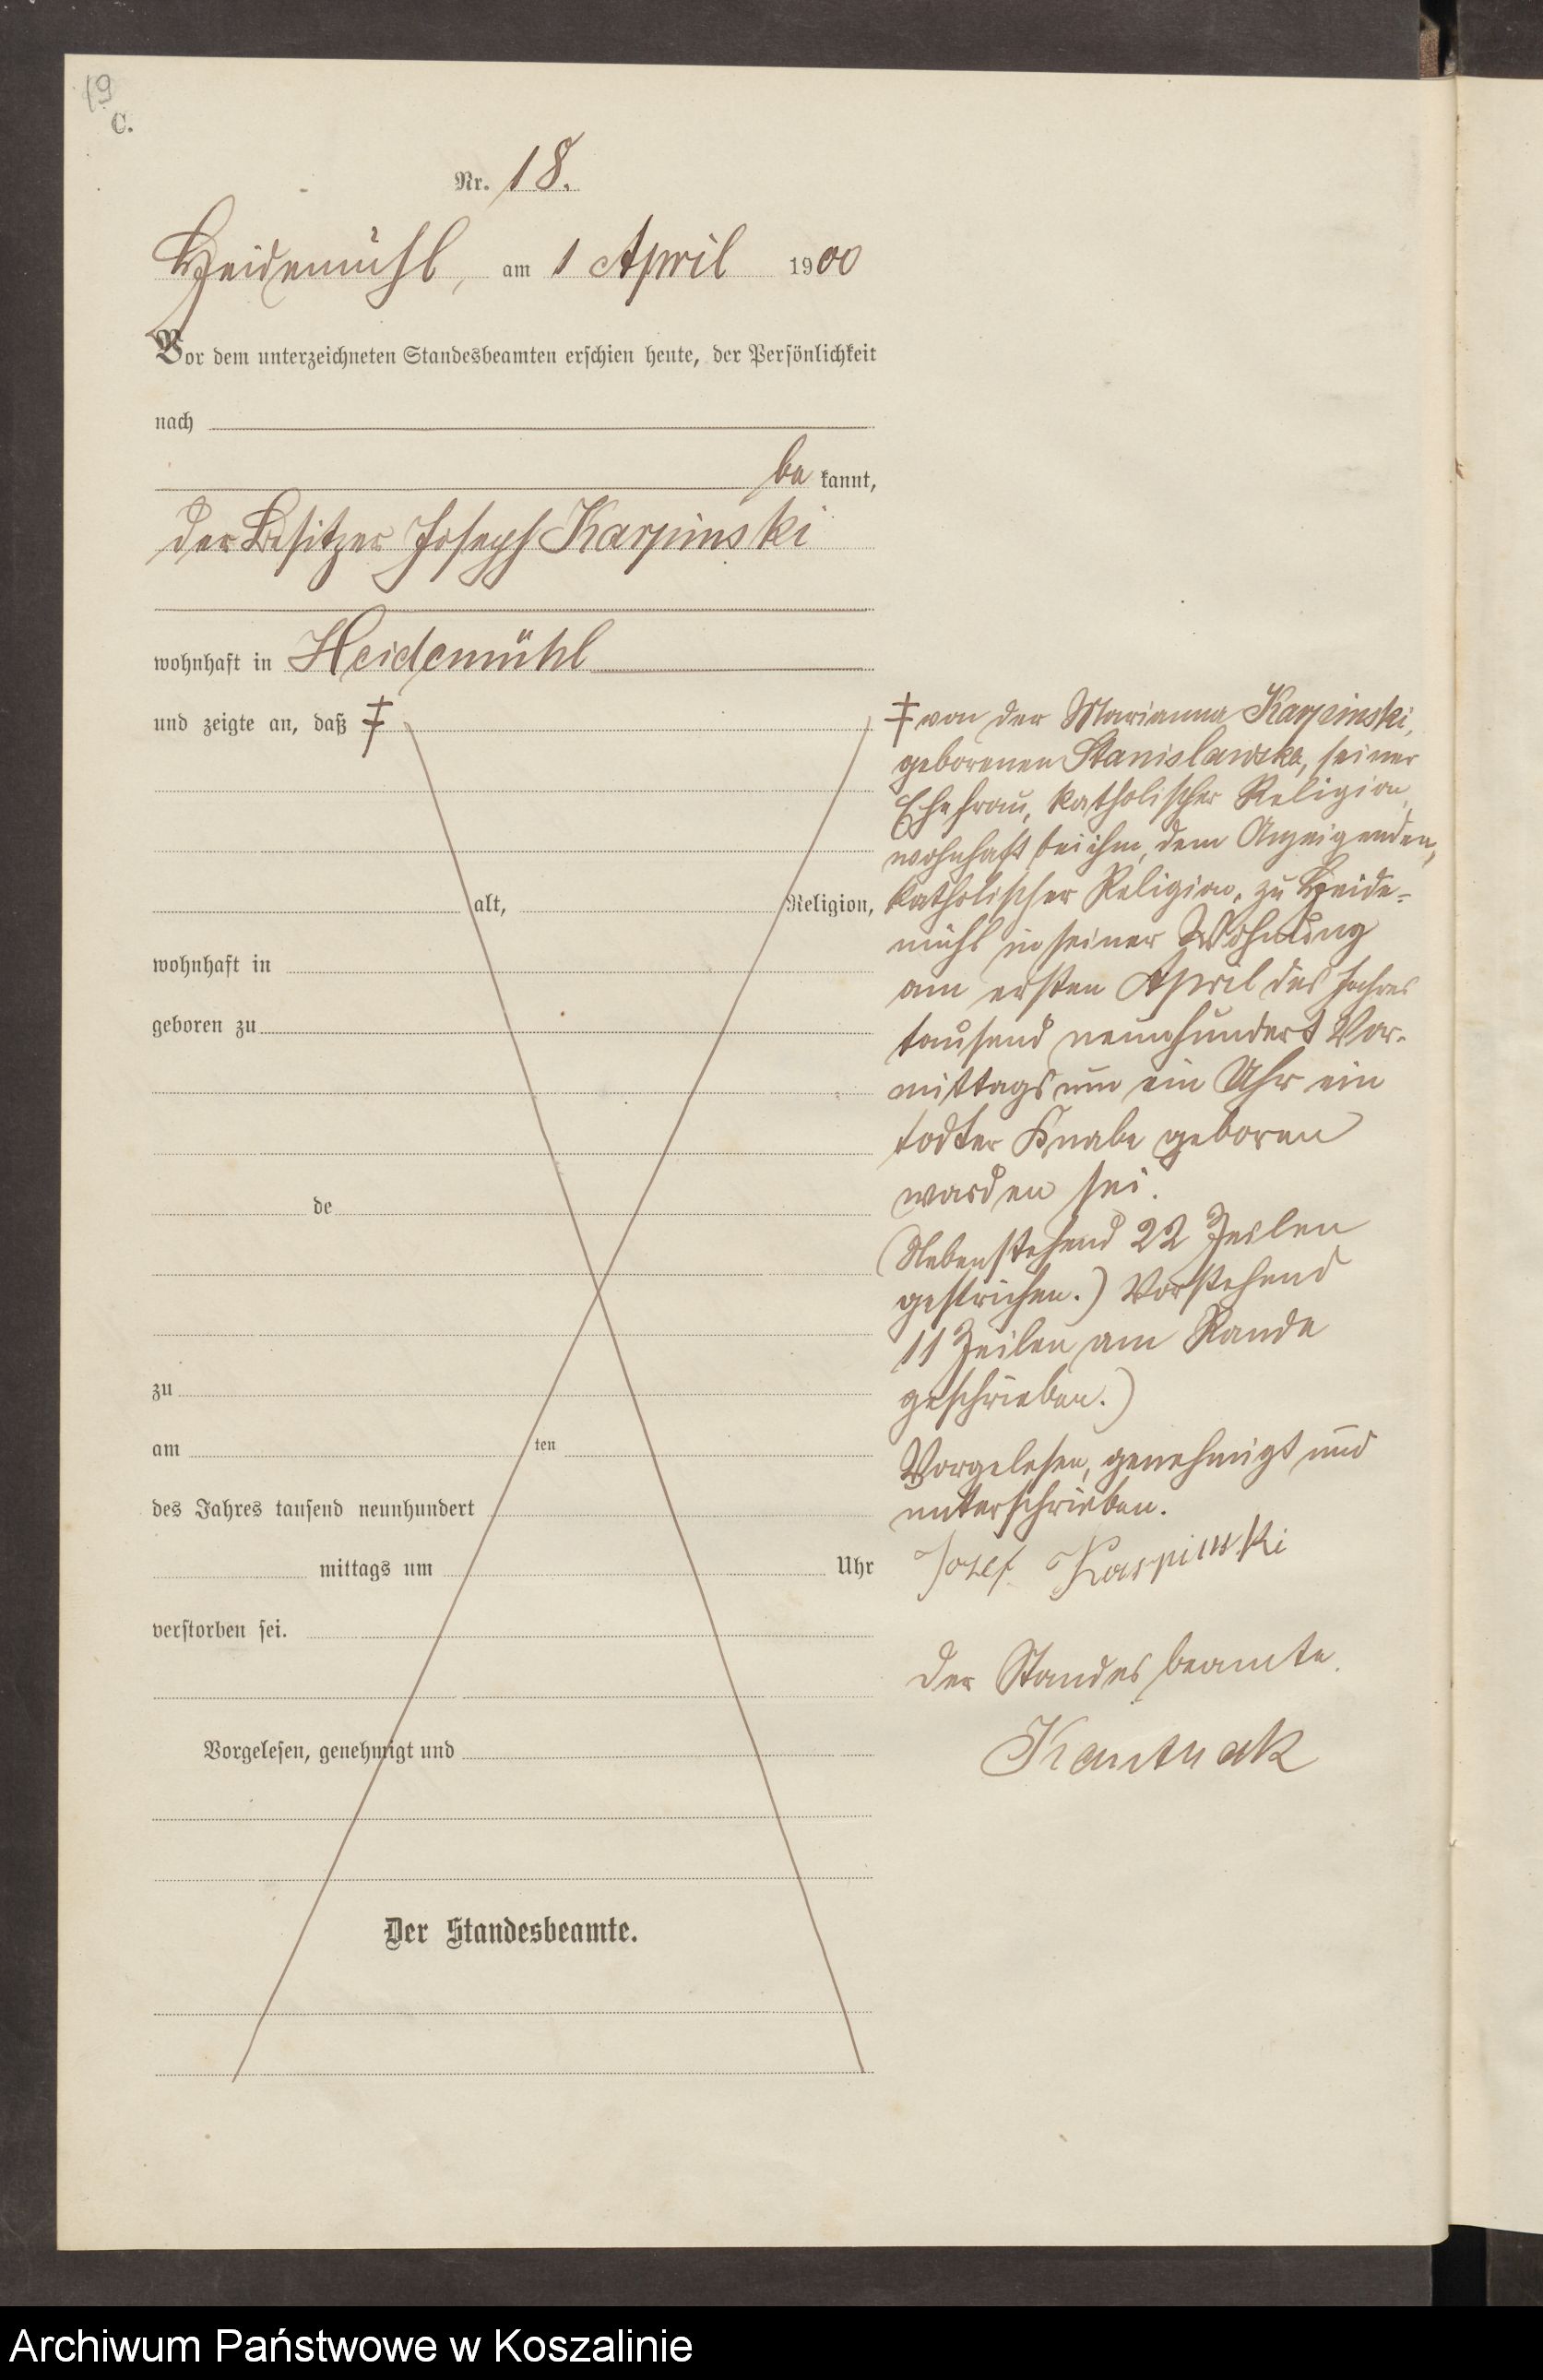 19
C.
Nr. 18.
Heidemühl, am 1 April 1900
Vor dem unterzeichneten Standesbeamten erschien heute, der Persönlichkeit
nach
be kannt,
der Besitzer Joseph Karpinski
wohnhaft in Heidemühl
und zeigte an, daß ‡
alt, Religion,
wohnhaft in
geboren zu
de
zu
am ten
des Jahres tausend neunhundert
mittags um Uhr
verstorben sei.
Vorgelesen, genehmigt und
Der Standesbeamte.
‡ von der Marianna Karpinski,
geborenen Stanislawska, seiner
Ehefrau, katholischer Religion,
wohnhaft bei ihm, dem Anzeigenden,
katholischer Religion, zu Heide-
mühl in seiner Wohnung
am ersten April des Jahres
tausend neunhundert Vor-
mittags um ein Uhr ein
todter Knabe geboren
worden sei.
(Nebenstehend 22 Zeilen
gestrichen.) Vorstehend
11 Zeilen am Rande
geschrieben.)
Vorgelesen, genehmigt und
unterschrieben.
Jozef Karpinski
Der Standesbeamte.
Archiwum Państwowe w Koszalinie